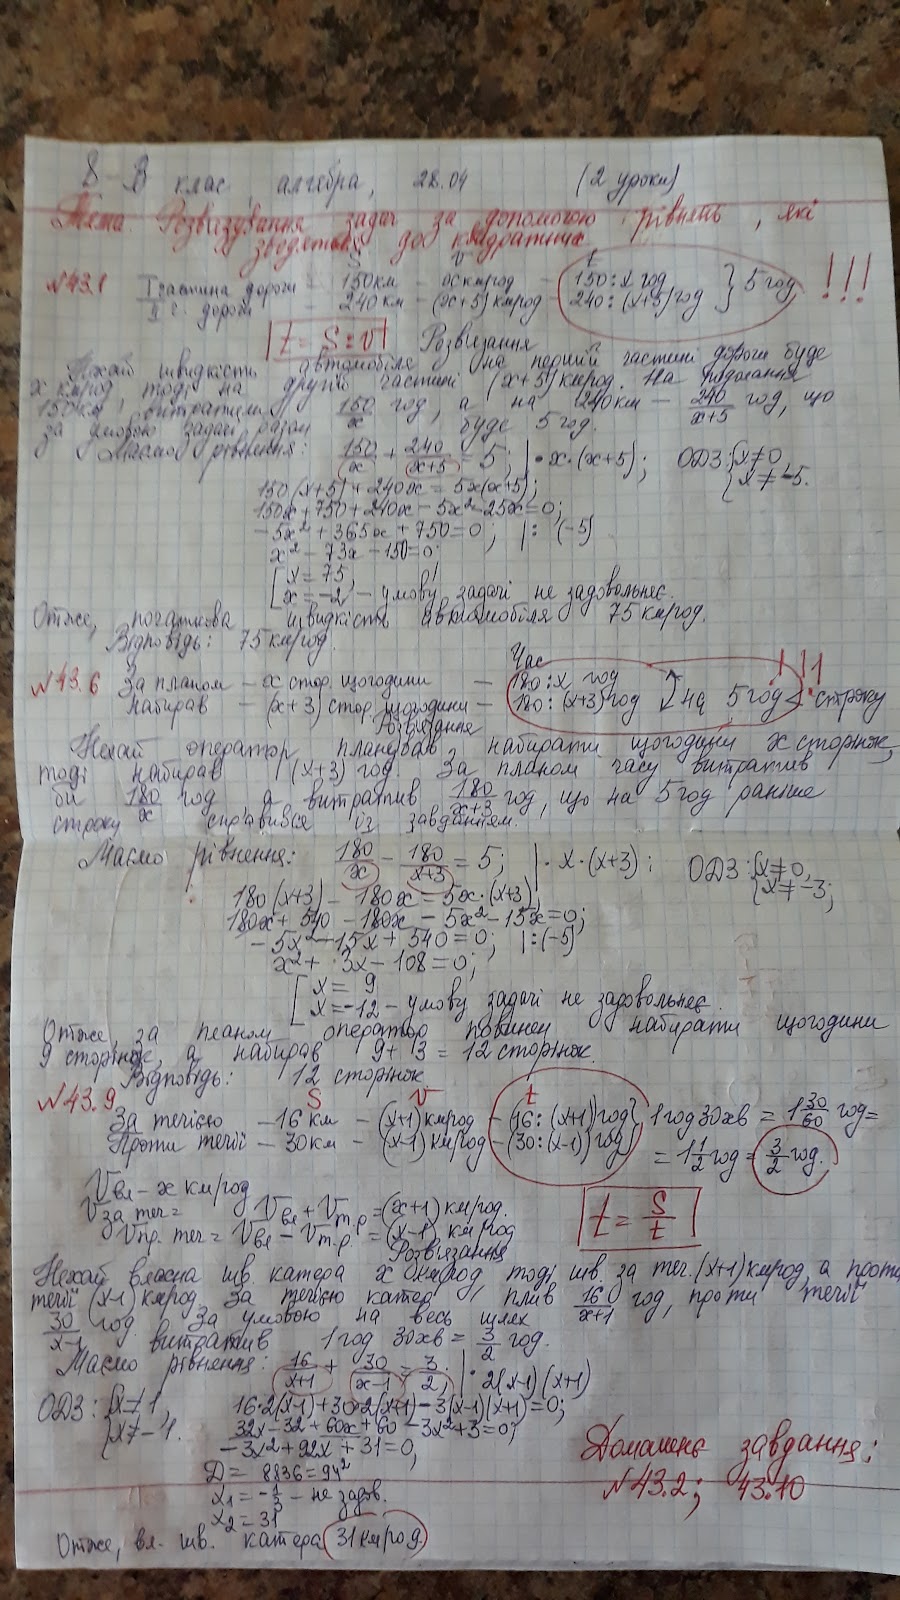 8-В клас алгебра, 28.04 (2 уроки)
Тема. Розв'язування задач за допомогою рівнянь, які
зводяться до квадратних
S v t
№43.1 I частина дороги - 150 км - x км/год - 150 : x год } 5 год !!!
II ч. дороги - 240 км - (x+5) км/год - 240 : (x+5) год
t = S : v Розв'язання
Нехай швидкість автомобіля на першій частині дороги буде
x км/год, тоді на другій частині (x+5) км/год. На подолання
150 км витратили 150/x год, а на 240 км - 240/(x+5) год, що
за умовою задачі разом буде 5 год.
Маємо рівняння: 150/x + 240/(x+5) = 5; | · x · (x+5); ОДЗ: { x ≠ 0, x ≠ -5.
150(x+5) + 240x = 5x(x+5);
150x + 750 + 240x - 5x² - 25x = 0;
-5x² + 365x + 750 = 0; | : (-5)
x² - 73x - 150 = 0;
[ x = 75,
x = -2 - умову задачі не задовольняє.
Отже, початкова швидкість автомобіля 75 км/год.
Відповідь: 75 км/год.
Час
№43.6 За планом - x стор. щогодини - 180 : x год
Набирав - (x+3) стор. щогодини - 180 : (x+3) год на 5 год < строку !!!
Розв'язання
Нехай оператор планував набирати щогодини x сторінок,
тоді набирав (x+3) год. За планом часу витратив
би 180/x год, а витратив 180/(x+3) год, що на 5 год раніше
строку справився із завданням.
Маємо рівняння: 180/x - 180/(x+3) = 5; | · x · (x+3); ОДЗ: { x ≠ 0, x ≠ -3;
180(x+3) - 180x = 5x·(x+3)
180x + 540 - 180x - 5x² - 15x = 0;
-5x² - 15x + 540 = 0; | : (-5)
x² + 3x - 108 = 0;
[ x = 9
x = -12 - умову задачі не задовольняє.
Отже, за планом оператор повинен набирати щогодини
9 сторінок, а набирав 9 + 3 = 12 сторінок.
Відповідь: 12 сторінок
№43.9 S v t
За течією - 16 км - (x+1) км/год - (16 : (x+1)) год } 1 год 30 хв = 1 30/60 год =
Проти течії - 30 км - (x-1) км/год - (30 : (x-1)) год = 1 1/2 год = 3/2 год.
Vвл - x км/год
Vза теч = Vвл + Vт.р = (x+1) км/год. t = S/t
Vпр. теч = Vвл - Vт.р. = (x-1) км/год
Розв'язання
Нехай власна шв. катера x км/год, тоді шв. за теч. (x+1) км/год, а проти
течії (x-1) км/год. За течією катер плив 16/(x+1) год, проти течії
30/(x-1) год. За умовою на весь шлях
витратив 1 год 30 хв = 3/2 год.
Маємо рівняння: 16/(x+1) + 30/(x-1) = 3/2; | · 2(x-1)(x+1)
ОДЗ: { x ≠ 1, 16·2(x-1) + 30·2(x+1) - 3(x-1)(x+1) = 0;
x ≠ -1. 32x - 32 + 60x + 60 - 3x² + 3 = 0;
-3x² + 92x + 31 = 0;
D = 8836 = 94²
x₁ = -1/3 - не задов.
x₂ = 31
Отже, вл. шв. катера 31 км/год.
Домашнє завдання:
№43.2; 43.10